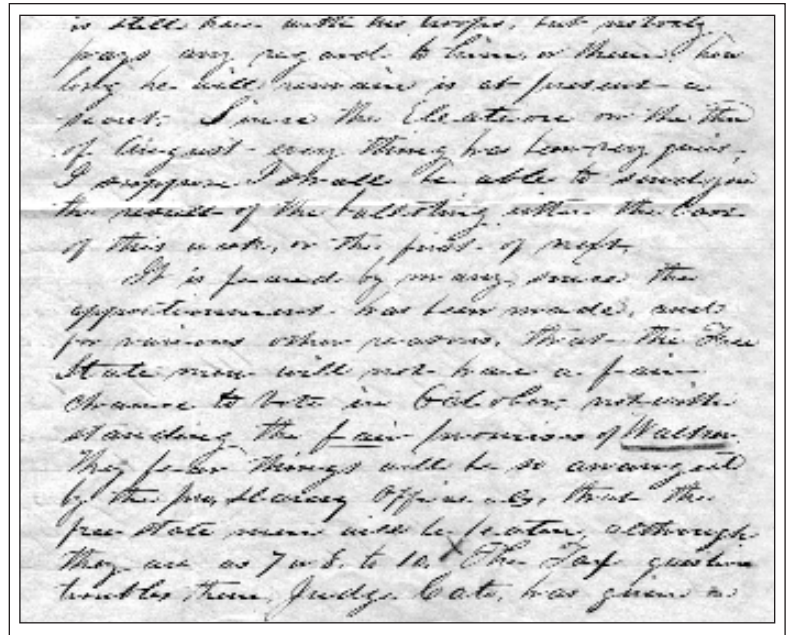 is still here with his troops, but nobody
pays any regard to him, or them, how
long he will remain is at present a
secret. Since the Election on the
of August every thing has been very quiet,
I suppose I shall be able to send you
the result of the ballotting either the last
of this week, or the first of next.
It is feared by many, since the
apportionment has been made, and
for various other reasons, that the Free
State men will not have a fair
chance to vote in October, notwith
standing the fair promises of Walker.
They fear things will be so arranged
by the pro, slavery officials, that the
free state men will be beaten, although
they are as 7 or 8. to 10. The Tax question
troubles them, Judge Cato, has given a